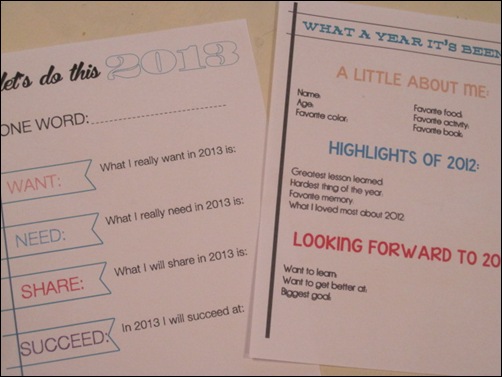 let's do this 2013
ONE WORD:
WANT:
What I really want in 2013 is:
NEED:
What I really need in 2013 is:
SHARE:
What I will share in 2013 is:
SUCCEED:
In 2013 I will succeed at:
WHAT A YEAR IT'S BEEN
A LITTLE ABOUT ME:
Name:
Age:
Favorite color:
Favorite food:
Favorite activity:
Favorite book:
HIGHLIGHTS OF 2012:
Greatest lesson learned:
Hardest thing of the year:
Favorite memory:
What I loved most about 2012:
LOOKING FORWARD TO 20
Want to learn:
Want to get better at:
Biggest goal: